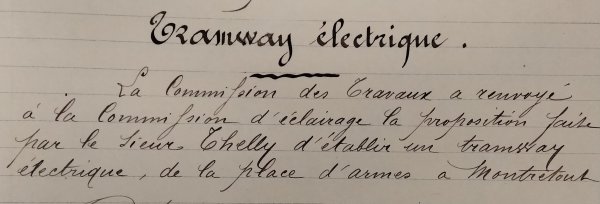 Tramway électrique.
La Commission des Travaux a renvoyé
à la Commission d'éclairage la proposition faite
par le sieur Thelly d'établir un tramway
électrique, de la place d'armes à Montretout